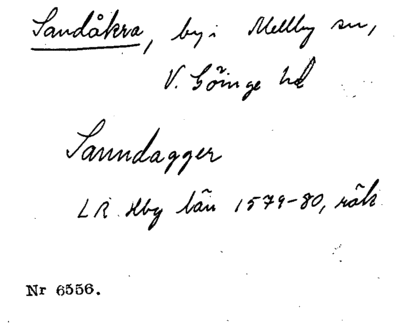 Sandåkra, by i Mellby sn,
V. Göinge hd
Sanndagger
LR Hby län 1579-80, räk
Nr 6556.